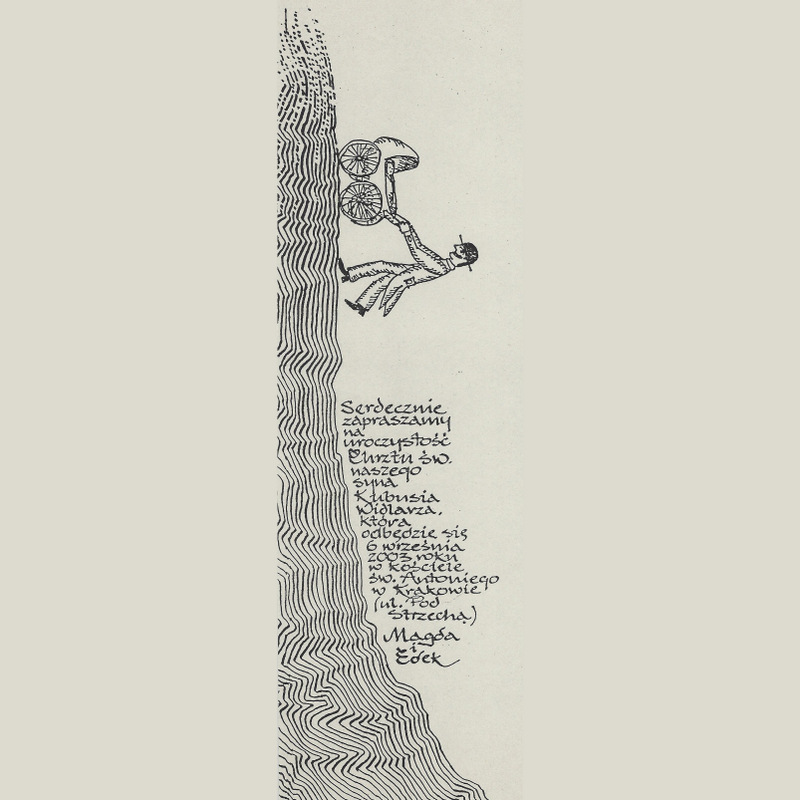 Serdecznie
zapraszamy
na
uroczystość
Chrztu św.
naszego
syna
Kubusia
Widlarza,
która
odbędzie się
6 września
2003 roku
w kościele
św. Antoniego
w Krakowie
(ul. Pod
Strzechą)
Magda
i
Edek